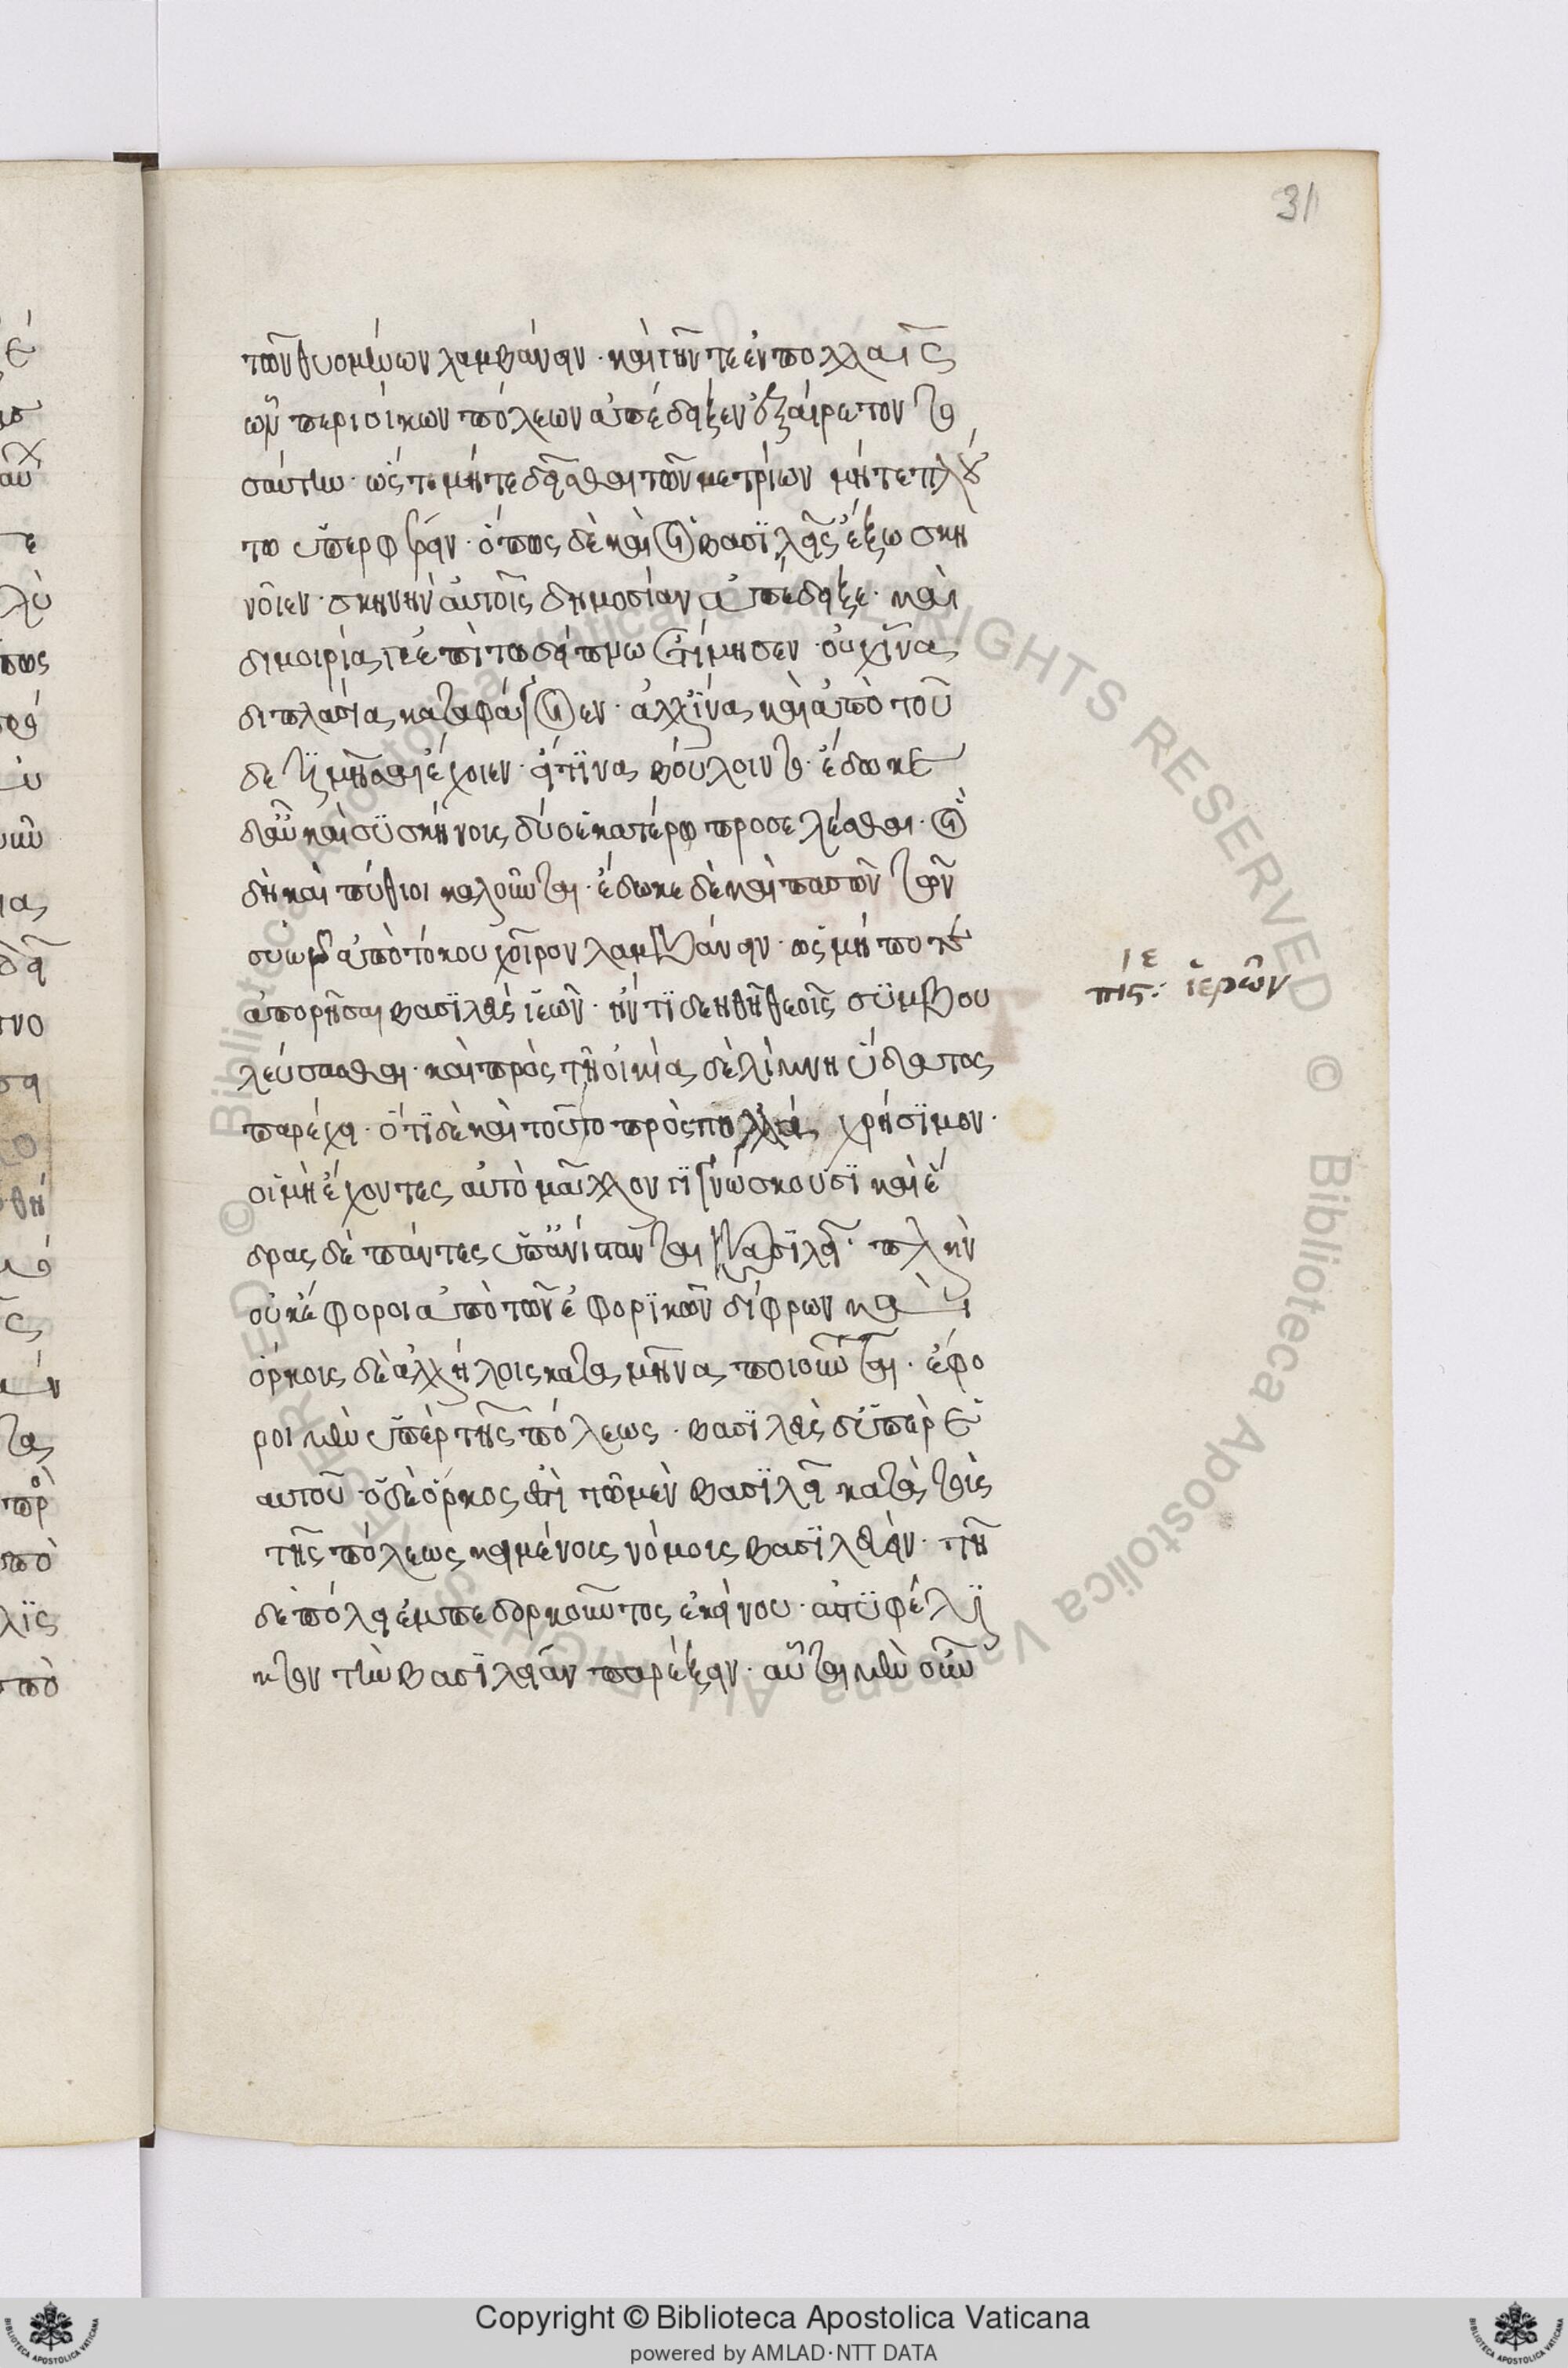 31
τῶν θυομένων λαμβάνειν· καὶ γῆν τε ἐν πολλαῖς
τῶν περιοίκων πόλεων ἀπέδειξεν ἐξαίρετον το
σαύτην· ὥστε μήτε δεῖσθαι τῶν μετρίων μήτε πλού
τω ὑπερφέρειν· ὅπως δὲ καὶ οἱ βασιλεῖς ἔξω σκη
νοῖεν· σκηνὴν αὐτοῖς δημοσίαν ἀπέδειξε· καὶ
διμοιρίας γε ἐπὶ τῶ δείπνω ἐτίμησεν· οὐχ ἵνα
διπλάσια καταφάγοιεν· ἀλλ' ἵνα καὶ ἀπὸ τοῦ
δε τιμῆσαι ἔχοιεν· εἴ τινα βούλοιντο· ἔδωκε
δ' αὖ καὶ συσκήνους δύο ἑκατέρω προσελέσθαι· οἳ
δὴ καὶ πύθιοι καλοῦνται· ἔδωκε δὲ καὶ πασῶν τῶν
συῶν ἀπὸ τόκου χοῖρον λαμβάνειν· ὡς μήποτε
ἀπορῆσαι βασιλεὺς ἱερῶν· ἤν τι δεηθῆ θεοῖς συμβου
λεύσασθαι· καὶ πρὸς τῆ οἰκία δὲ λίμνη ὕδατος
παρέχει· ὅτι δὲ καὶ τοῦτο πρὸς πολλὰ χρήσιμον·
οἱ μὴ ἔχοντες αὐτὸ μᾶλλον γιγνώσκουσι καὶ ἕ
δρας δὲ πάντες ὑπανίστανται βασιλεῖ· πλὴν
οὐκ ἔφοροι ἀπὸ τῶν ἐφορικῶν δίφρων καὶ
ὅρκους δὲ ἀλλήλοις κατὰ μῆνα ποιοῦνται· ἔφο
ροι μὲν ὑπὲρ τῆς πόλεως· βασιλεὺς δ' ὑπὲρ ἑ
αυτοῦ· ὁ δὲ ὅρκος ἐστὶ τῶ μὲν βασιλεῖ κατὰ τοὺς
τῆς πόλεως κειμένους νόμους βασιλεύειν· τῆ
δὲ πόλει ἐμπεδορκοῦντος ἐκείνου· ἀστυφέλι
κτον τὴν βασιλείαν παρέξειν· αὗται μὲν οὖν
ἱερῶν